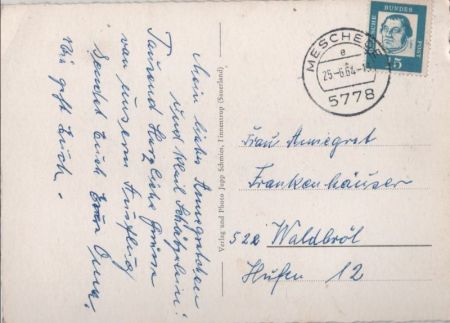 Mein liebes Annegretchen
und Klein Schäfzlein!
Tausend herzliche Grüsse
von unserm Ausflug
sendet Euch Eure Oma.
Verlag und Photo Jupp Schmies, Finnentrop (Sauerland)
MESCHEDE
e
25-6.64-1
5778
DEUTSCHE BUNDESPOST
15
Frau Annegret
Frankenhäuser
522 Waldbröl
Hufen 12